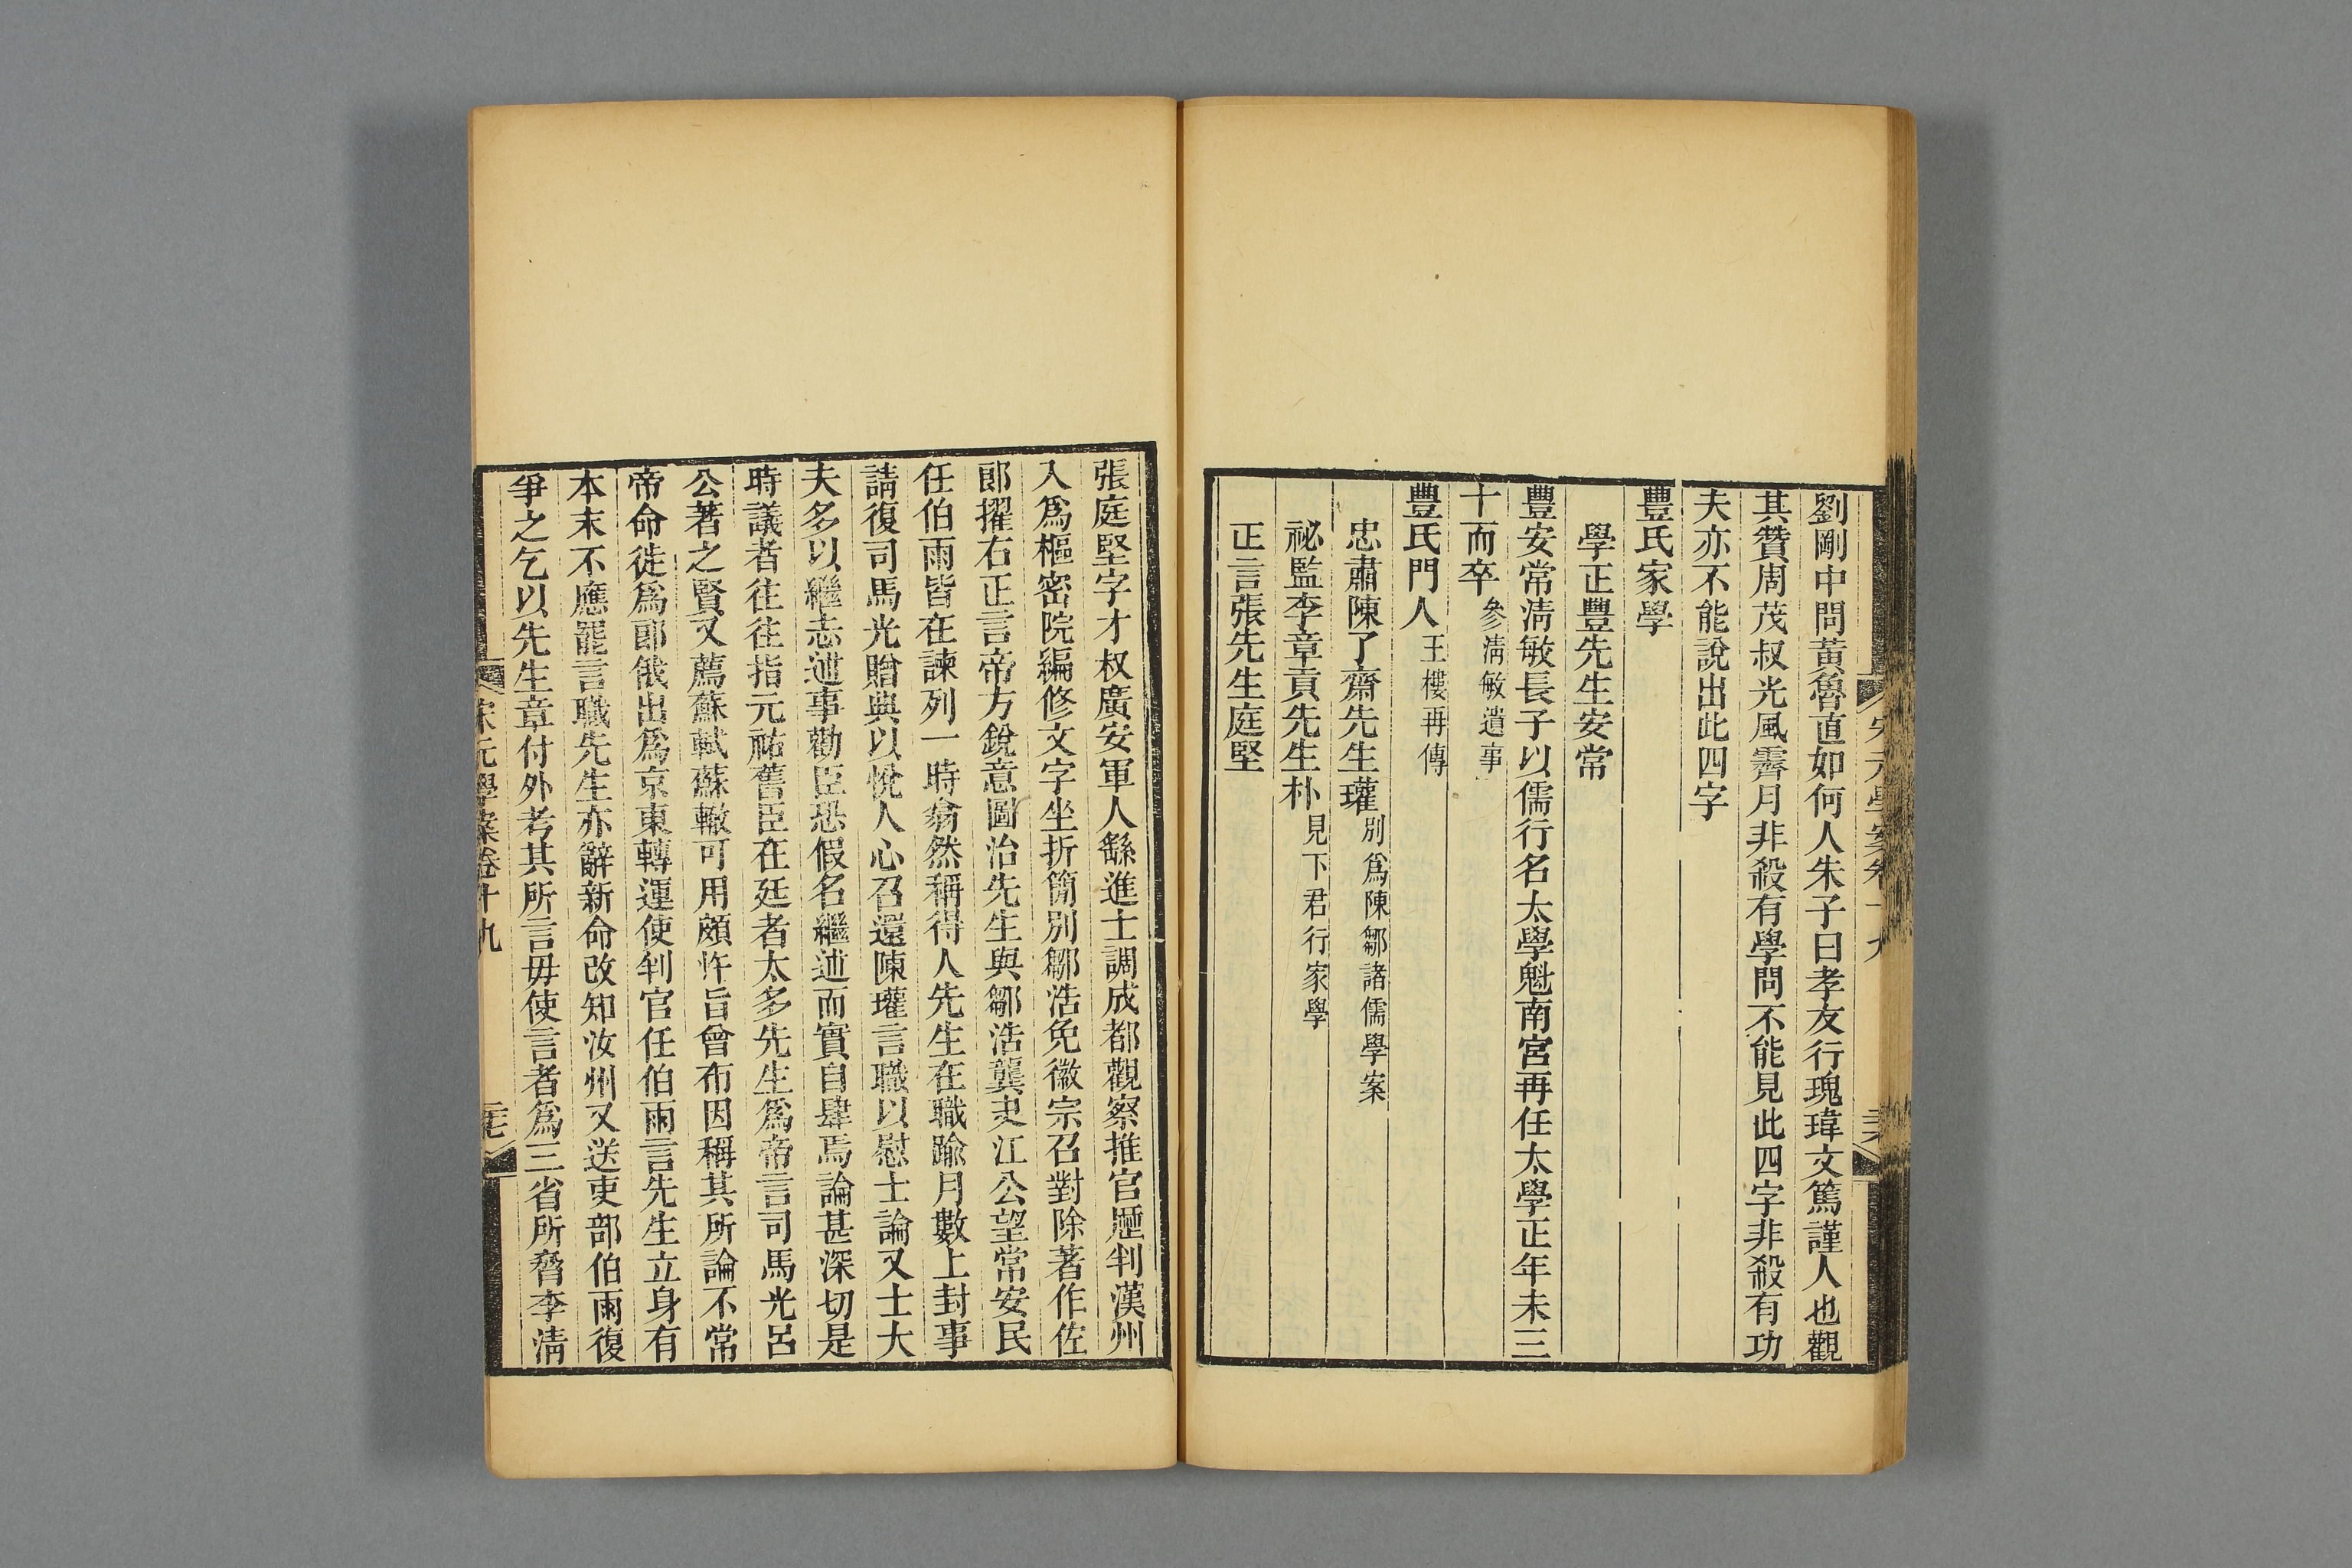 劉剛中問黃魯直如何人朱子曰孝友行瑰瑋文篤謹人也觀
其贊周茂叔光風霽月非殺有學問不能見此四字非殺有功
夫亦不能說出此四字
豐氏家學
學正豐先生安常
豐安常淸敏長子以儒行名太學魁南宮再任太學正年未三
十而卒參淸敏遺事
豐氏門人王樓再傳
忠肅陳了齋先生瓘別爲陳鄒諸儒學案
祕監李章貢先生朴見下君行家學
正言張先生庭堅
張庭堅字才叔廣安軍人繇進士調成都觀察推官歷判漢州
入爲樞密院編修文字坐折簡別鄒浩免徽宗召對除著作佐
郞擢右正言帝方銳意圖治先生與鄒浩龔夬江公望常安民
任伯雨皆在諫列一時翕然稱得人先生在職踰月數上封事
請復司馬光贈典以悅人心召還陳瓘言職以慰士論又士大
夫多以繼志述事勸臣恐假名繼述而實自肆焉論甚深切是
時議者往往指元祐舊臣在廷者太多先生爲帝言司馬光呂
公著之賢又薦蘇軾蘇轍可用頗忤旨曾布因稱其所論不常
帝命徙爲郞俄出爲京東轉運使判官任伯雨言先生立身有
本末不應罷言職先生亦辭新命改知汝州又送吏部伯雨復
爭之乞以先生章付外考其所言毋使言者爲三省所脅李淸
宋元學案卷十九